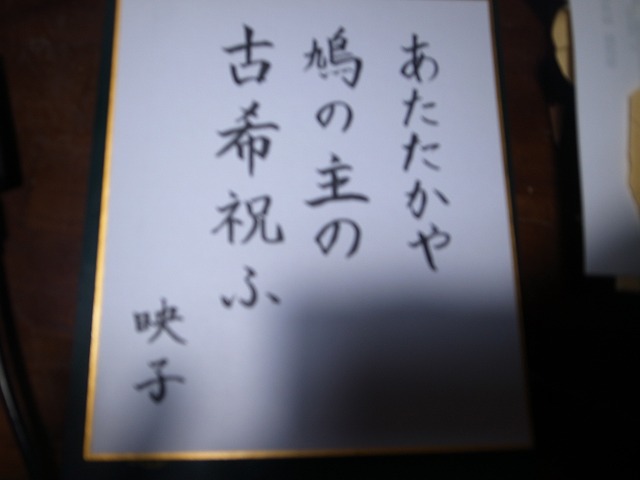 あたたかや
鳩の主の
古希祝ふ
映子